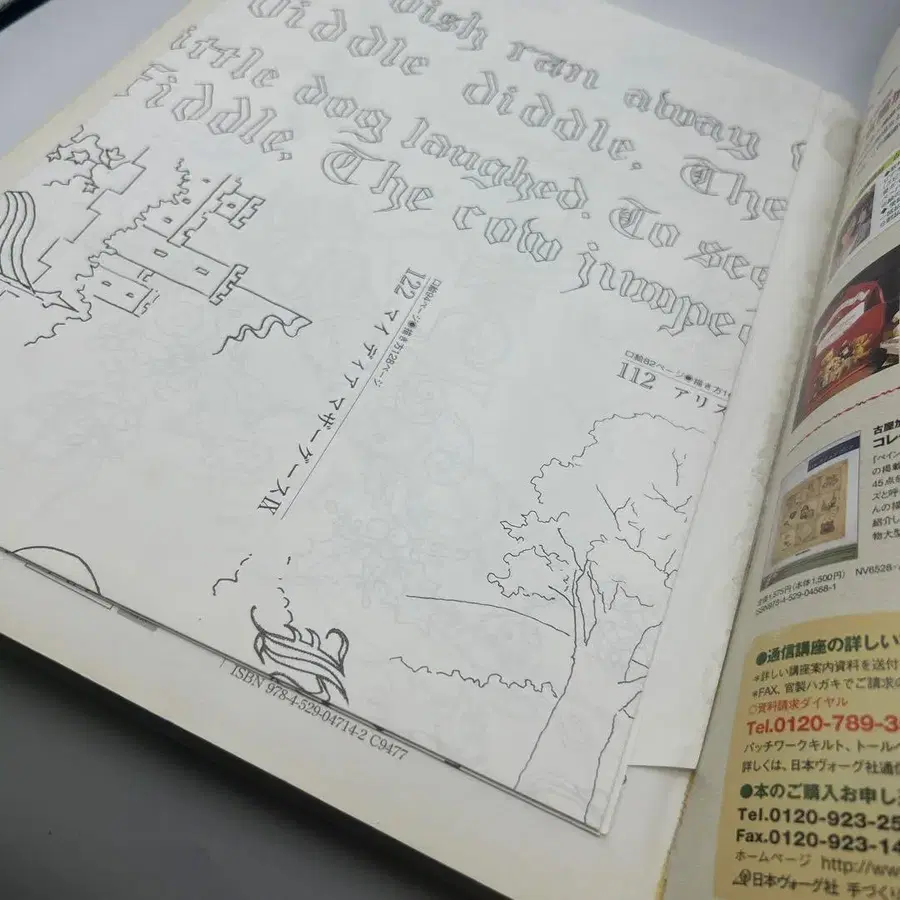 ish ran away
iddle diddle, The
ittle dog laughed. To see
Fiddle, The cow jumped
口絵94ページ●描き方128ページ
122 マイ ディア マザーグースⅨ
口絵82ページ●描き方1
112 アリス
ISBN 978-4-529-04714-2 C9477
コレ
の掲載
45点を
ズと呼
んの描
紹介し
物大型
定価1,575円(本体1,500円) NV6528
ISBN978-4-529-04568-1
●通信講座の詳しい
*詳しい講座案内資料を送付
*FAX、官製ハガキでご請求の
○資料請求ダイヤル
Tel.0120-789-3
パッチワークキルト、トールペ
詳しくは、日本ヴォーグ社通信
●本のご購入お申し
Tel.0120-923-25
Fax.0120-923-14
ホームページ http://ww
日本ヴォーグ社 手づくり